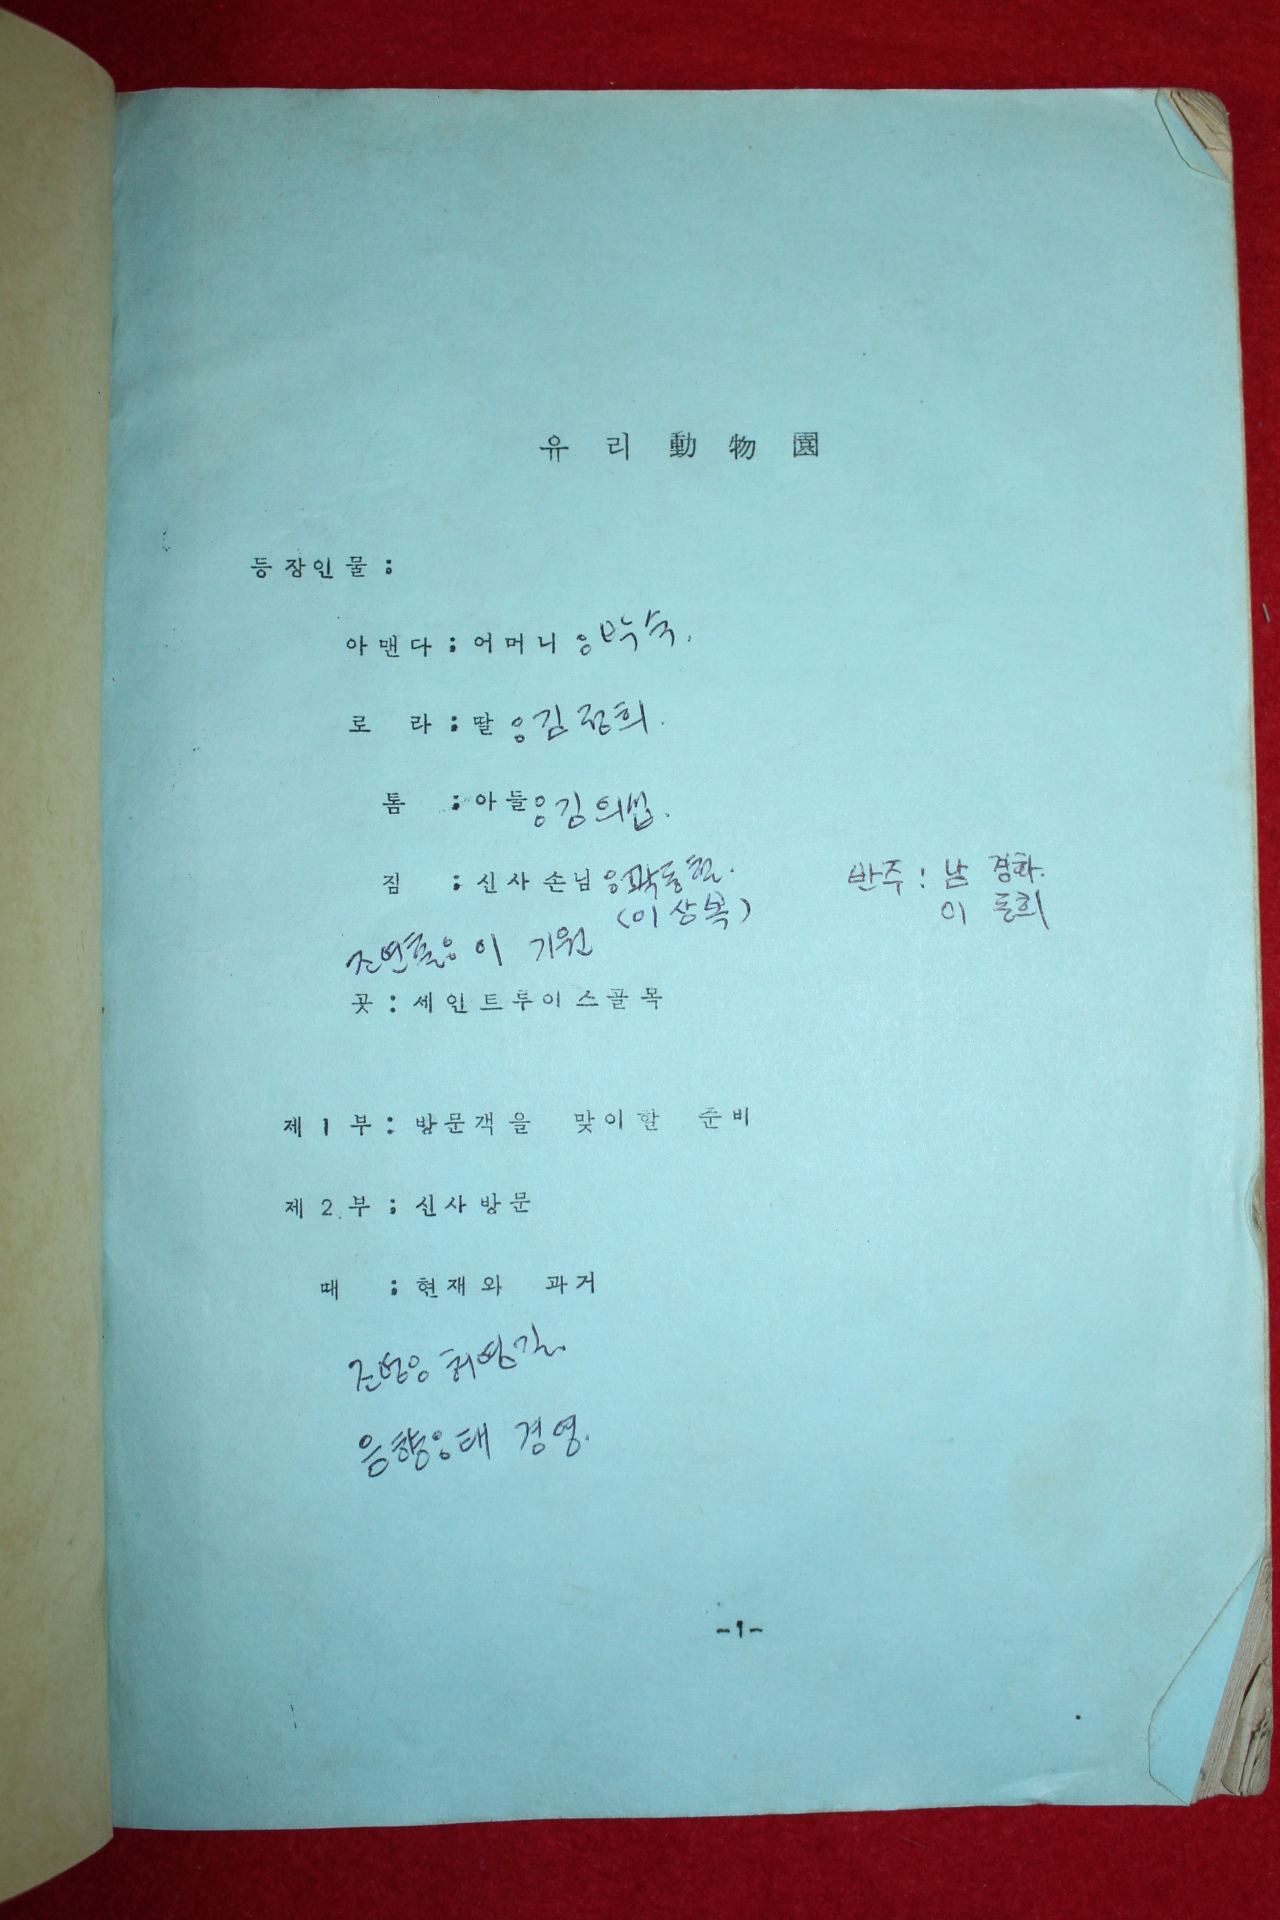 유리動物園
등장인물 :
아맨다 ; 어머니 : 박숙.
로 라 ; 딸 : 김정희.
톰 ; 아들 : 김의범.
짐 ; 신사손님 : 곽동철. 반주 : 남 경화.
(이상복) 이 동희
조연출 : 이 기원
곳 : 세인트루이스골목
제1부 : 방문객을 맞이할 준비
제2부 ; 신사방문
때 ; 현재와 과거
조명 : 허영길.
음향 : 태 경영.
-1-